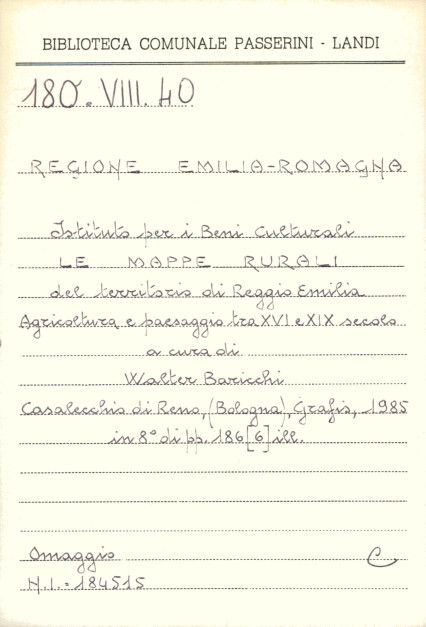 BIBLIOTECA COMUNALE PASSERINI - LANDI
180.VIII.40
REGIONE EMILIA-ROMAGNA
Istituto per i Beni Culturali
LE MAPPE RURALI
del territorio di Reggio Emilia
Agricoltura e paesaggio tra XVI e XIX secolo
a cura di
Walter Baricchi
Casalecchio di Reno, (Bologna), Grafis, 1985
in 8° di pp. 186 [6] ill.
Omaggio C
N.I. = 184515